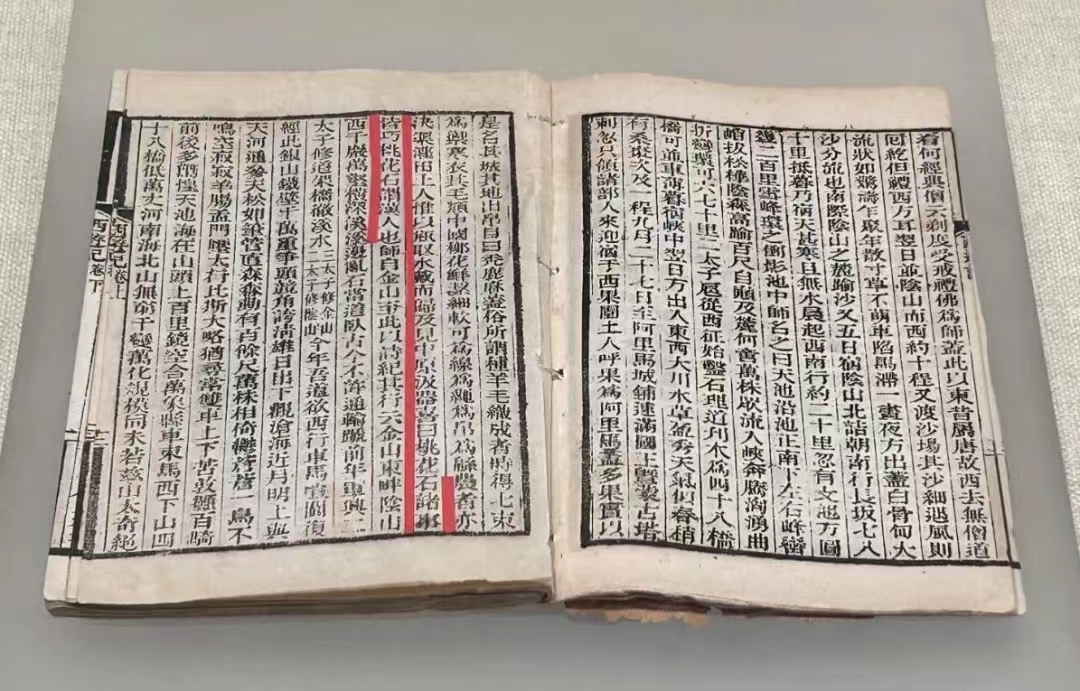 看何經典僧云剃度受戒禮佛爲師蓋此以東昔屬唐故西去無僧道
回紇但禮西方耳翌日並陰山而西約十程又渡沙場其沙細遇風則
流狀如驚濤乍聚乍散寸草不萌車陷馬滯一晝夜方出蓋白骨甸大
沙分流也南際陰山之麓踰沙又五日宿陰山北詰朝南行長坂七八
十里抵暮乃宿天甚寒且無水晨起西南行約二十里忽有大池方圓
幾二百里雪峰環之倒影池中師名之曰天池沿池正南下左右峰巒
峭拔松樺陰森高踰百尺自巔及麓何啻萬株衆流入峽奔騰洶湧曲
折彎環可六七十里二太子扈從西征始鑿石理道刋木爲四十八橋
橋可並車薄暮宿峽中翌日方出入東西大川水草盈秀天氣似春稍
有桑棗次及一程九月二十七日至阿里馬城鋪速滿國王曁蒙古塔
剌忽只領諸部人來迎宿于西果園土人呼果爲阿里馬蓋多果實以
是名其城其地出帛目曰禿鹿麻蓋俗所謂種羊毛織成者時得七束
爲禦寒衣其毛類中國柳花鮮潔細軟可爲線爲繩爲帛爲緜農者亦
決渠灌田土人惟以缾取水戴而歸及見中原汲器喜曰桃花石諸事
皆巧桃花石謂漢人也師自金山至此以詩紀其行云金山東畔陰山
西千巖萬壑攢深溪溪邊亂石當道臥古今不許通輪蹄前年軍興二
太子修道架橋徹溪水三太子修金山二太子修陰山今年吾道欲西行車馬喧闐復
經此銀山鐵壁千萬重爭頭競角誇清雄日出下觀滄海近月明上與
天河通參天松如筆管直森森動有百餘尺萬株相倚鬱蒼蒼一鳥不
鳴空寂寂羊腸孟門壓太行比斯大略猶尋常雙車上下苦敦顛百騎
前後多驚惶天池海在山頭上百里鏡空含萬象縣車束馬西下山四
十八橋低萬丈河南海北山無窮千變萬化規模同未若茲山太奇絕
西遊記卷上
西遊記卷下